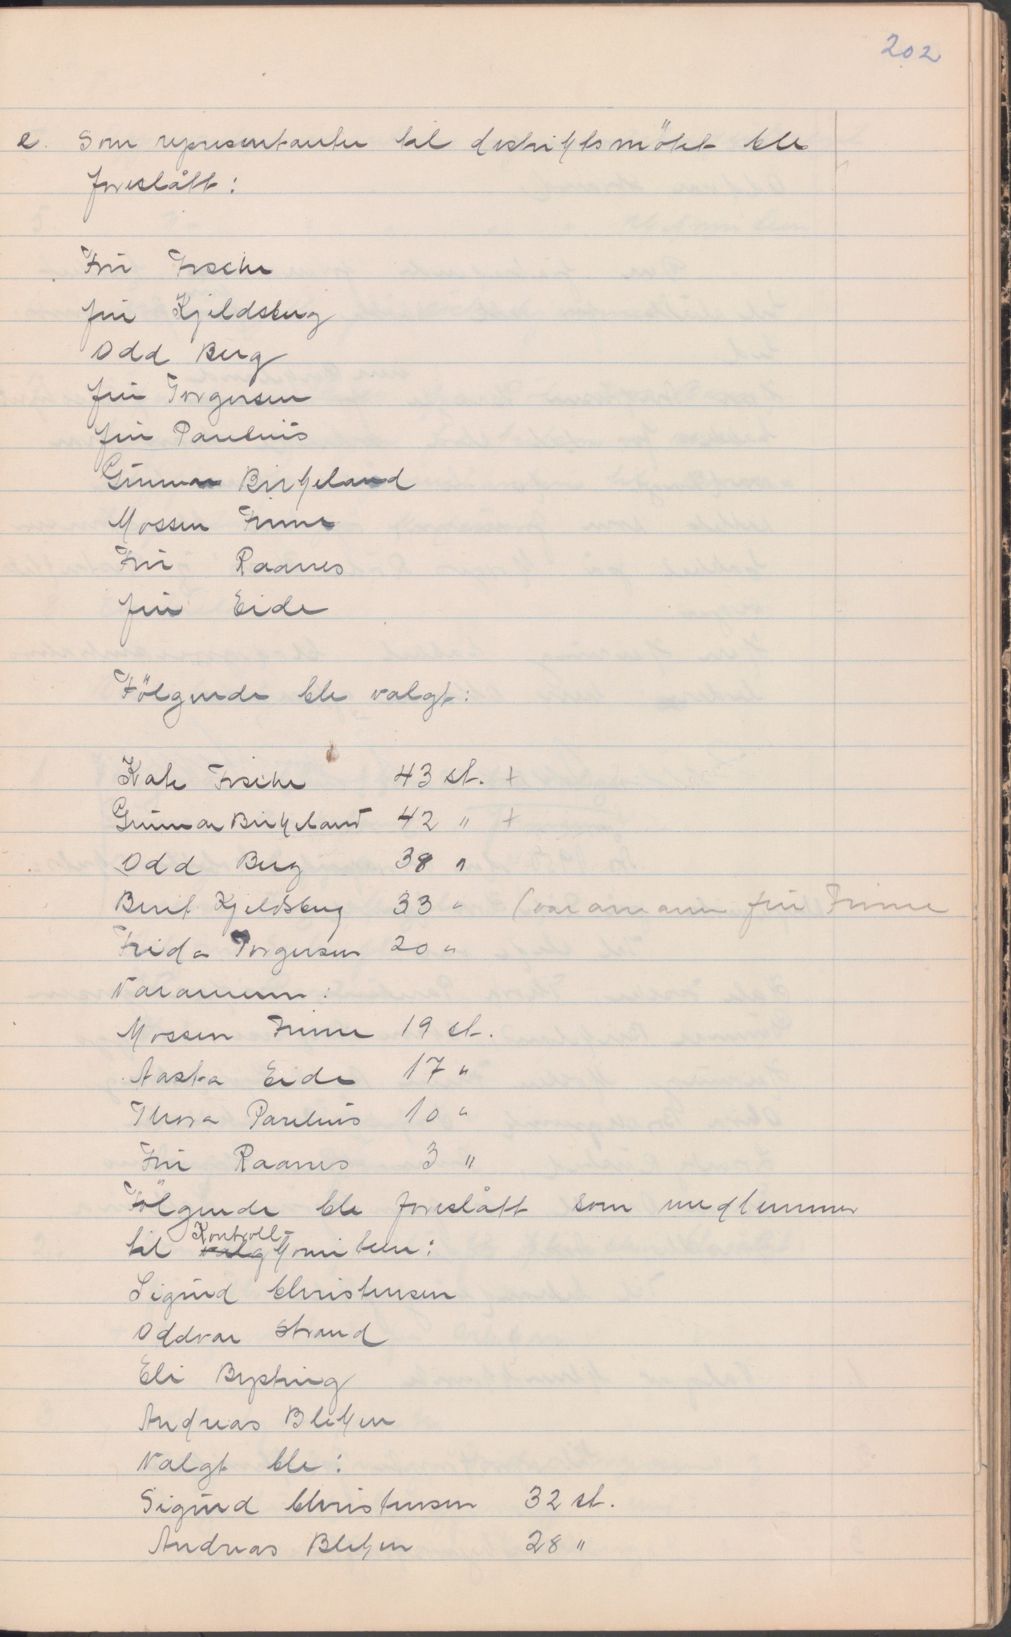 202
e. Som representanter til distriktsmötet ble
foreslått:
Fru Frsche
fru Kjeldsberg
Odd Berg
fru Torgersen
fru Paulius
Gunnar Birkeland
Mossen Finne
Fru Raanes
fru Eide
Fölgende ble valgt:
Kate Frsche 43 st. +
Gunnar Birkeland 42 " +
Odd Berg 38 "
Berit Kjeldsberg 33 " (varamann fru Finne
Frida Torgersen 20 "
Varamenn:
Mossen Finne 19 st.
Aasta Eide 17 "
Thora Paulius 10 "
Fru Raanes 3 "
Fölgende ble foreslått som medlemmer
til Kontroll-komiteen:
Sigurd Christensen
Oddvar Strand
Eli Bystrig
Andreas Blikken
Valgt ble:
Sigurd Christensen 32 st.
Andreas Blikken 28 "